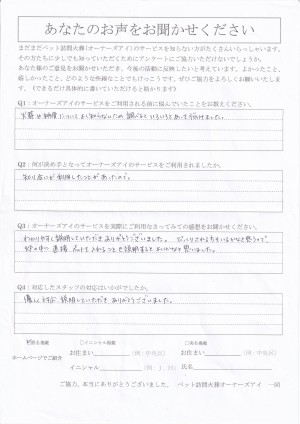 あなたのお声をお聞かせください
まだまだペット訪問火葬(オーナーズアイ)のサービスを知らない方がたくさんいらっしゃいます。
その方たちに少しでも知っていただくためにアンケートにご協力いただけないでしょうか。
あなた様のご意見をお聞かせいただき、今後の活動に反映したいと考えています。よかったこと、
嬉しかったこと、どのような些細なことでもけっこうです。ぜひご協力をよろしくお願いいたします。
(できるだけ具体的に書いていただけると助かります)
Q1:オーナーズアイのサービスをご利用される前に悩んでいたことをお教えください。
火葬や納骨について
Q2:何が決め手となってオーナーズアイのサービスをご利用されましたか。
知り合いが利用したことがあったので。
Q3:オーナーズアイのサービスを実際にご利用なさってみての感想をお聞かせください。
わかりやすく説明していただきありがとうございました。
Q4:対応したスタッフの対応はいかがでしたか。
優しく対応 説明していただき ありがとうございました。
ホームページでご紹介
□イニシャル掲載
□実名掲載
お住まい (例:中央区)
お住まい (例:中央区)
イニシャル
氏名
ご協力、本当にありがとうございました。 ペット訪問火葬オーナーズアイ 一同